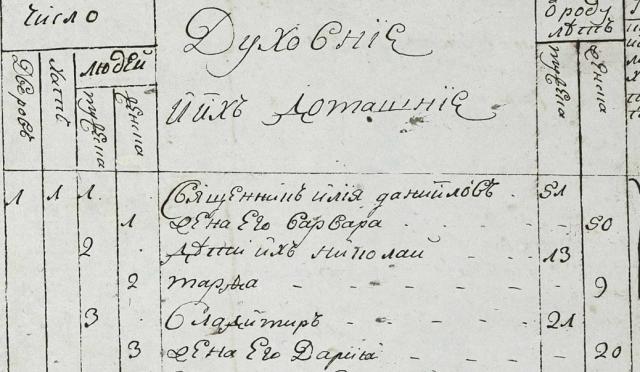 число
Духовніе
ѿ роду
лѣтъ
Дворовъ
хатъ
людей
мужеска
женска
мужеска
женска
ийхъ домашніе
1 1 1 Священникъ илія данийловъ 51
1 жена Его варвара 50
2 дѣти ихъ николай 13
2 марѳа 9
3 владимиръ 21
3 жена Его Дарийя 20